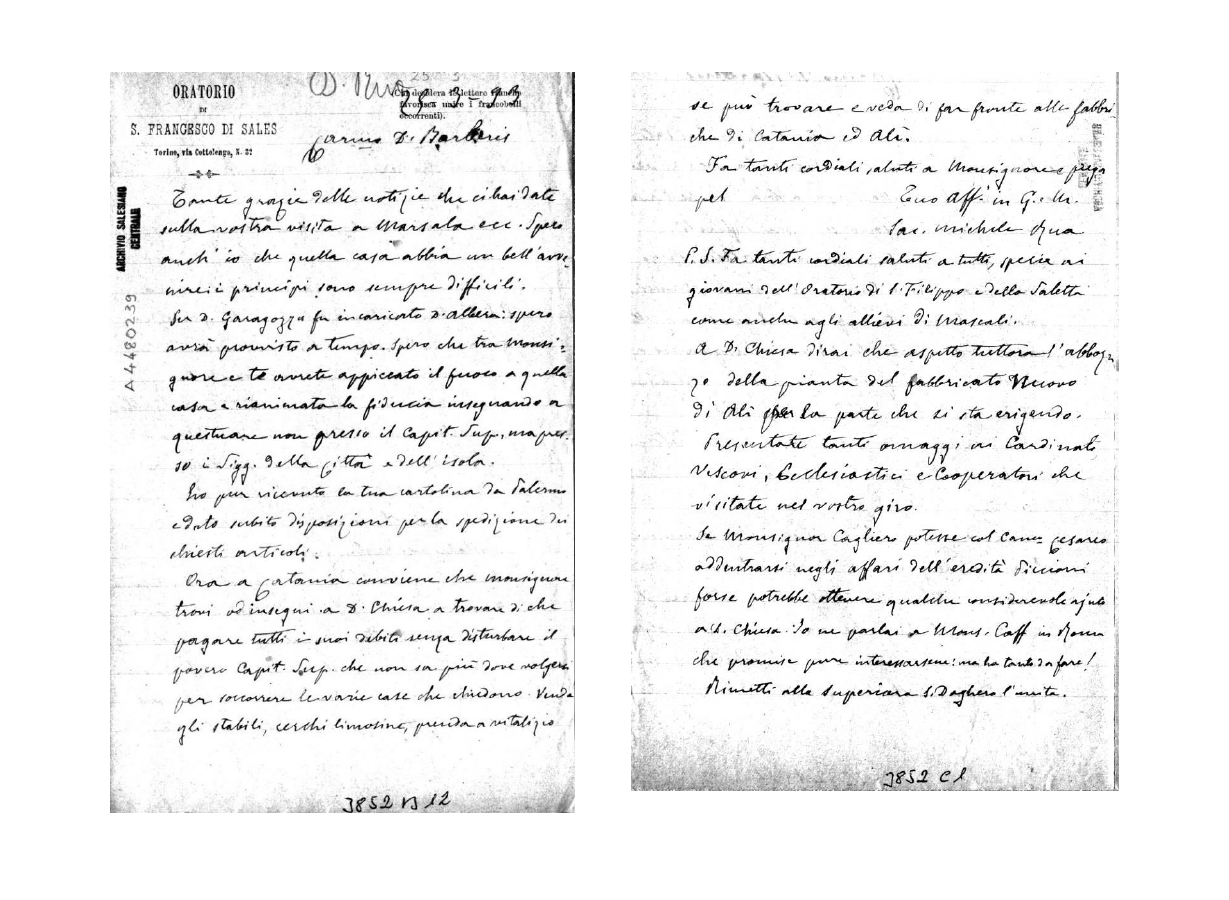 ORATORIO
DI
S. FRANCESCO DI SALES
Torino, via Cottolengo, N. 32
D. Rua 25 3
(Chi desidera lettere
favorisca unire i francobolli
occorrenti).
Carmo D. Barberis
Tante grazie delle notizie che ci hai date
sulla vostra visita a Marsala ecc. Spero
anch' io che quella casa abbia un bell'avve-
nire: i principi sono sempre difficili.
Per D. Garagozzu fu incaricato D. Albera: spero
avrà provvisto a tempo. Spero che tra Monsi=
gnore e te avrete appiccato il fuoco a quella
casa e rianimata la fiducia insegnando a
questuare non presso il Capit. Sup., ma pres-
so i Sigg. della città e dell'isola.
Ho pur ricevuto la tua cartolina da Palermo
e dato subito disposizioni per la spedizione dei
chiesti articoli.
Ora a Catania conviene che Monsignore
trovi od insegni a D. Chiesa a trovare di che
pagare tutti i suoi debiti senza disturbare il
povero Capit. Sup. che non sa più dove volgersi
per soccorrere le varie case che chiedono. Venda
gli stabili, cerchi limosine, prenda a vitalizio
ARCHIVIO SALESIANO
CENTRALE
A4480239
3852 B 12
se può trovare e veda di far fronte alle fabbri
che di Catania ed Alì.
Fa tanti cordiali saluti a Monsignore e prega
pel Tuo Aff. in G. M.
Sac. Michele Rua
P.S. Fa tanti cordiali saluti a tutti, specie ai
giovani dell'Oratorio di S. Filippo e della Saletta
come anche agli allievi di Mascali.
A D. Chiesa dirai che aspetto tuttora l'abboz
zo della pianta del fabbricato Nuovo
di Alì per la parte che si sta erigendo.
Presentate tanti omaggi ai Cardinali,
Vescovi, Ecclesiastici e Cooperatori che
visitate nel vostro giro.
Se Monsignor Cagliero potesse col Canco Cesareo
addentrarsi negli affari dell'eredità Piccioni
forse potrebbe ottenere qualche considerevole ajuto
a D. Chiesa. Io ne parlai a Mons. Caff in Roma
che promise pure interessarsene: ma ha tanto da fare!
Rimetti alla Superiora S. Daghero l'unita.
3852 C 1